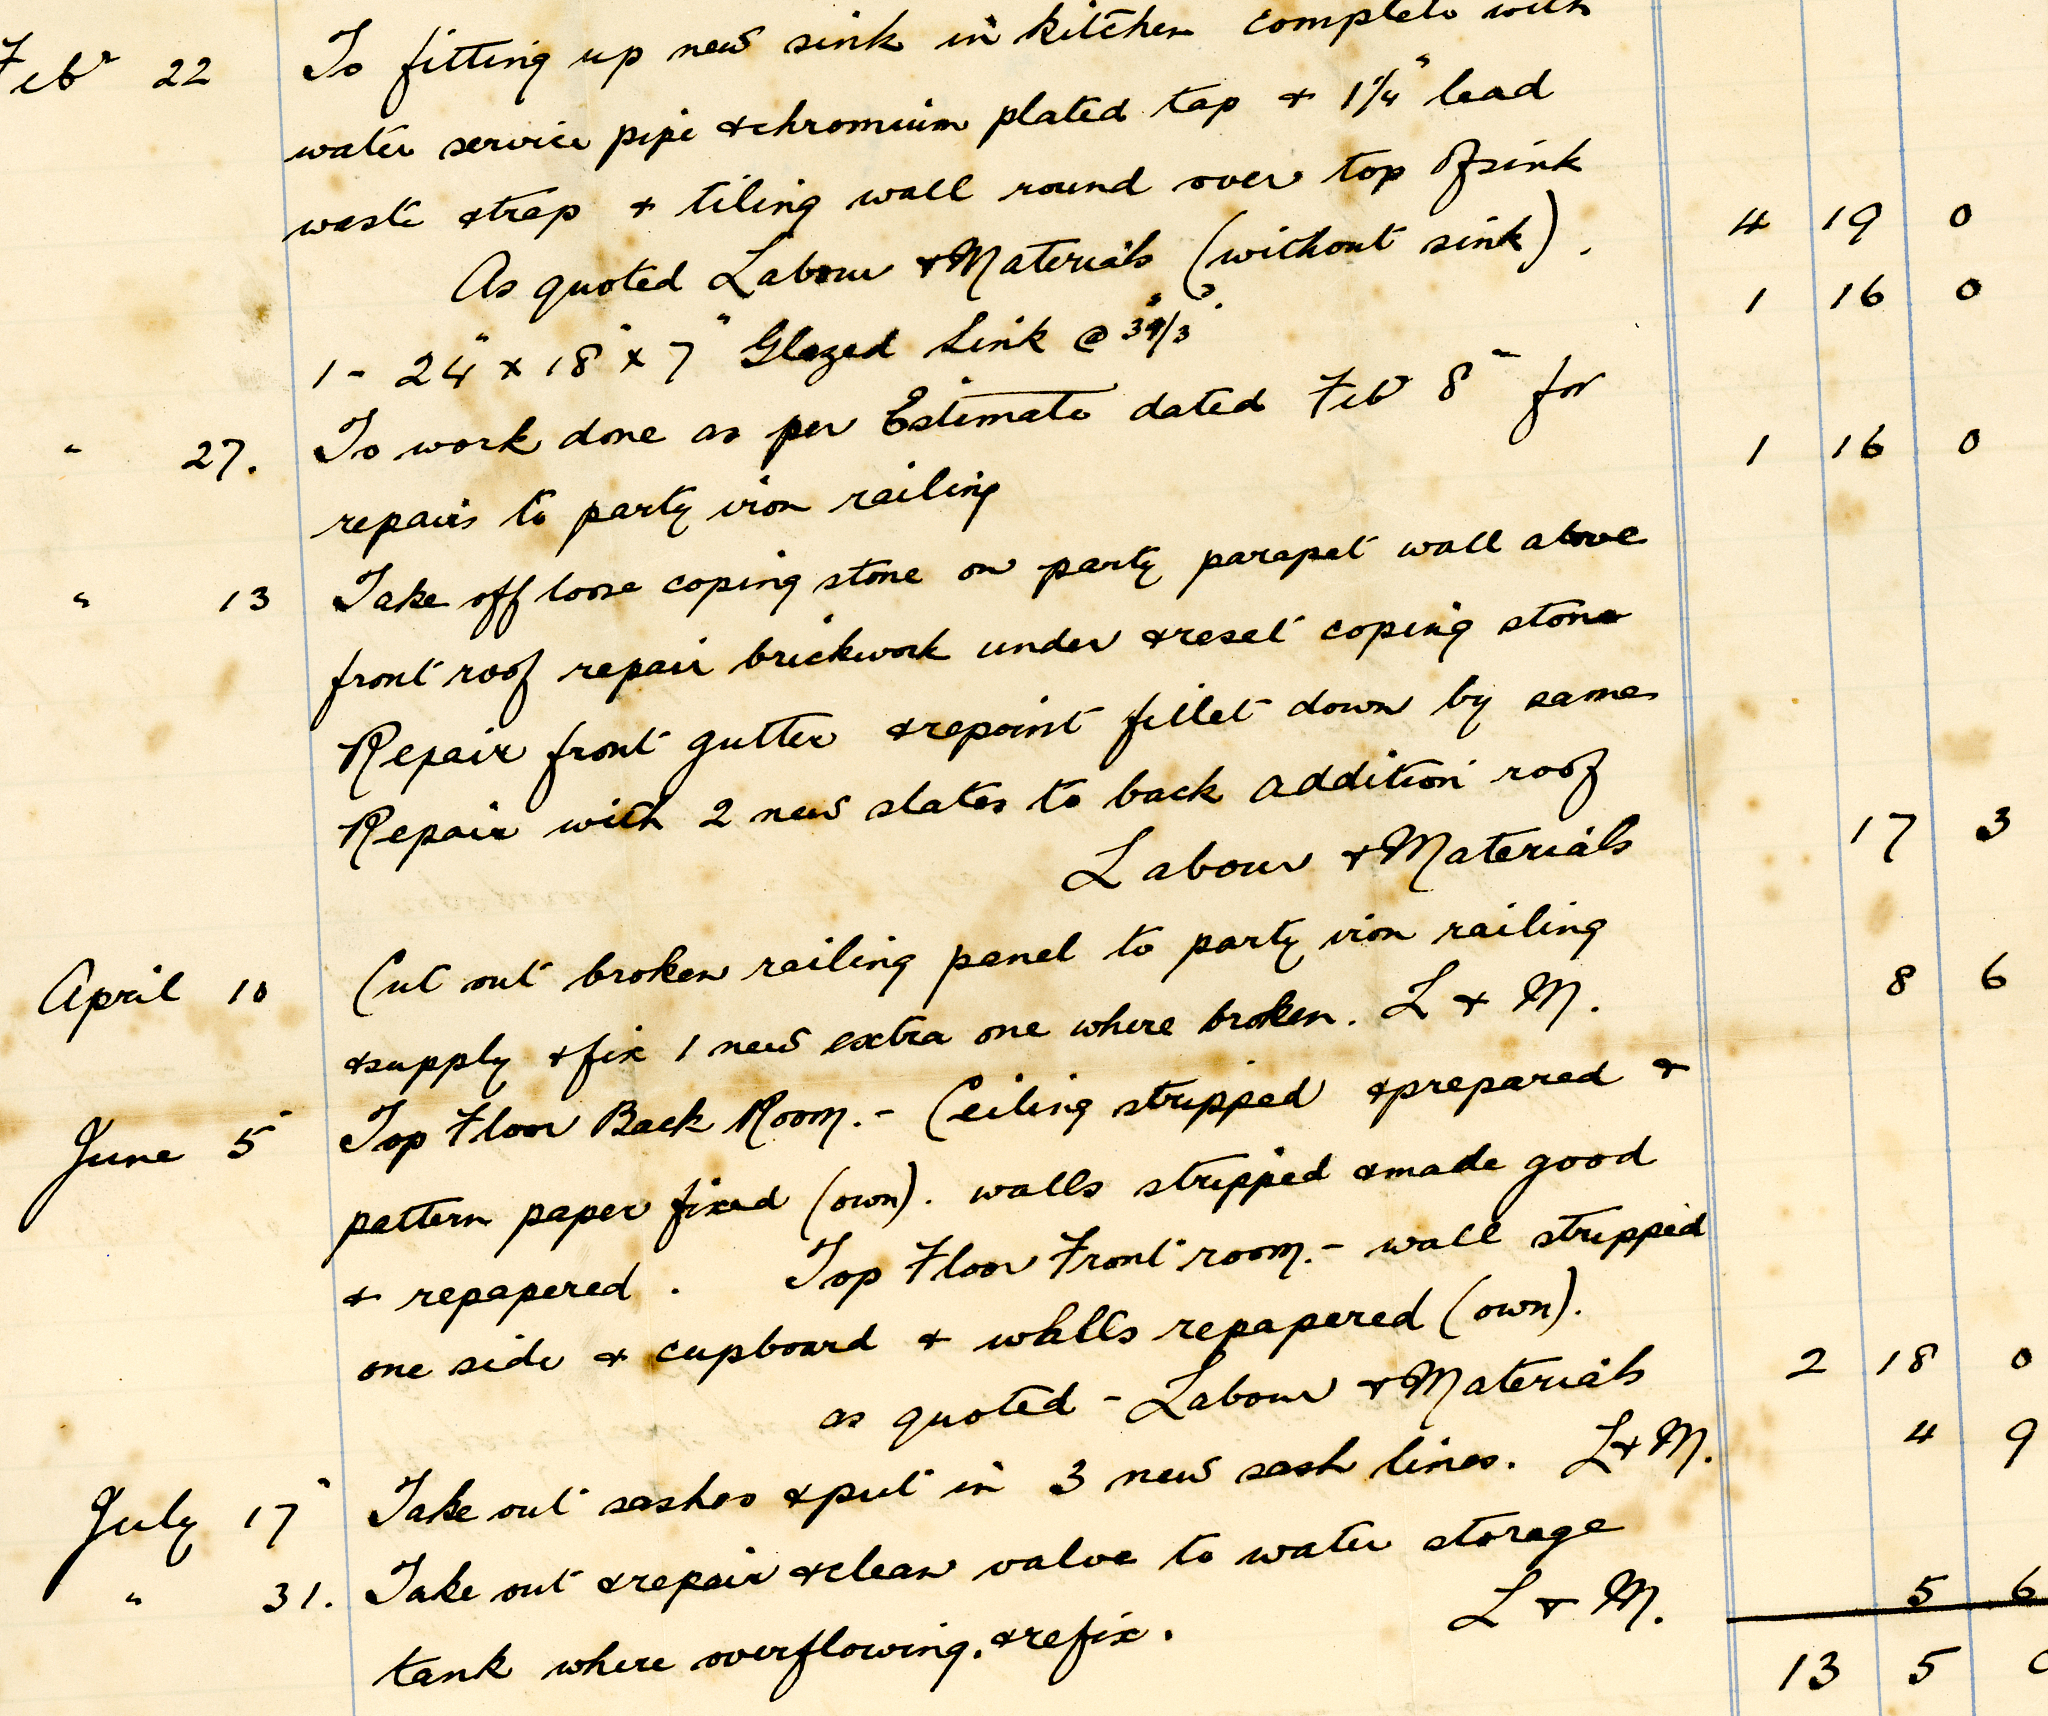 Feb 22 To fitting up new sink in kitchen complete with
water service pipe & chromium plated tap & 1¼" lead
waste & trap & tiling wall round over top of sink
As quoted Labour & Materials (without sink). 4 19 0
1 - 24" x 18" x 7" Glazed Sink @ 1 16 0
" 27. To work done as per Estimate dated Feb 8 for
repairs to party iron railing 1 16 0
" 13 Take off loose coping stone on party parapet wall above
front roof repair brickwork under & reset coping stone
Repair front gutter & repoint fillet down by same
Repair with 2 new slates to back addition roof
Labour & Materials 17 3
April 10 Cut out broken railing panel to party iron railing
& supply & fix 1 new extra one where broken. L & M. 8 6
June 5 Top Floor Back Room. - Ceiling stripped & prepared &
pattern paper fixed (own). walls stripped & made good
& repapered. Top Floor Front room. - wall stripped
one side & cupboard & walls repapered (own).
as quoted - Labour & Materials 2 18 0
July 17 Take out sashes & put in 3 new sash lines. L & M. 4 9
" 31. Take out & repair & clean valve to water storage
tank where overflowing, & refix. L & M. 5 6
13 5